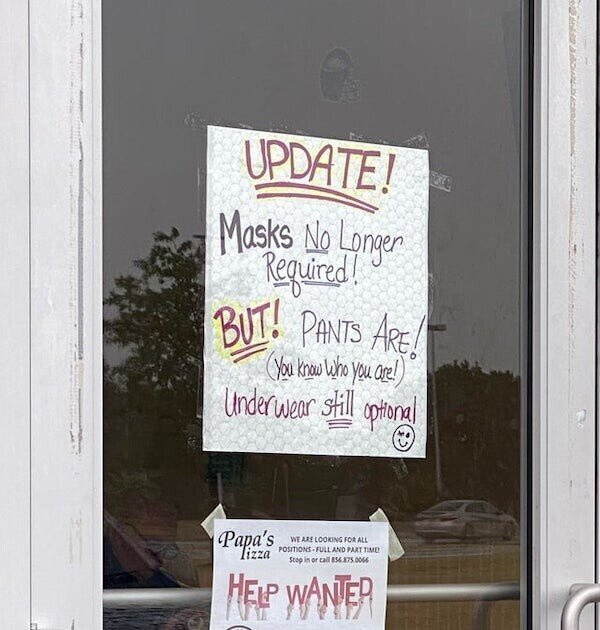 UPDATE!
Masks No Longer
Required!
BUT! PANTS ARE!
(You know who you are!)
Underwear still optional
Papa's
Pizza
WE ARE LOOKING FOR ALL
POSITIONS - FULL AND PART TIME!
Stop in or call 856.875.0066
HELP WANTED